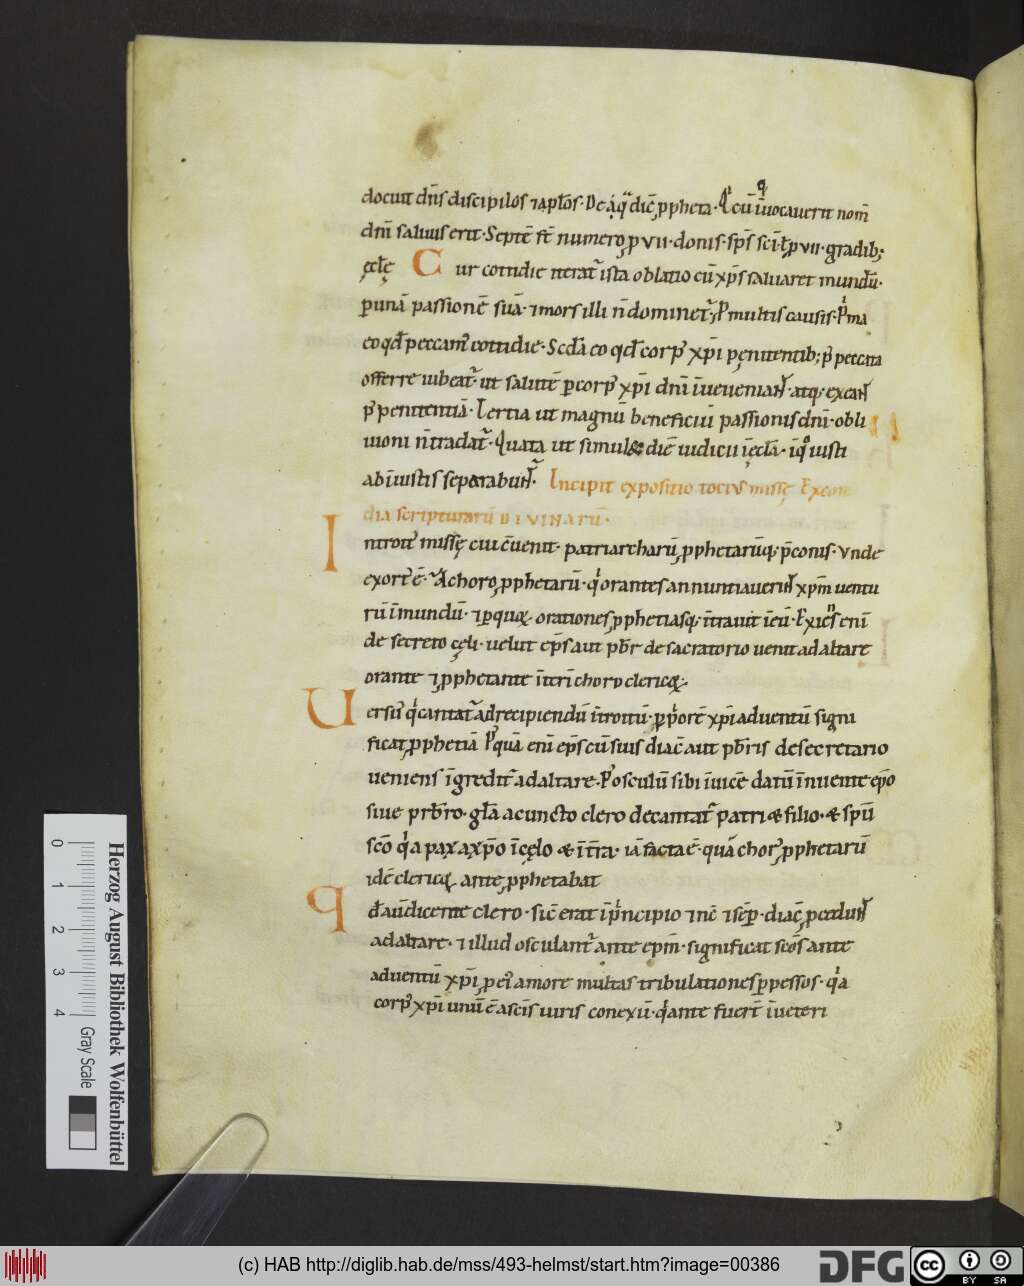 docuit dn̄s discipulos ⁊ apłos. De a qua dic̄ ppheta. Q cū īuocauerit nom̄
dn̄i saluus erit. Septē st̄ numero p VII. donis. sp̄s sc̄i. ł p VII. gradib;
ęcłę Cur cottidie iterat᷑ ista oblatio cū xp̄s saluaret mundū.
p unā passionē suā. ⁊ mors illi n̄ dominet᷑. P multis causis. Pma
eo qđ peccam᷒ cottidie. Scđa eo qđ corp᷒ xp̄i pęnitentib; p peccata
offerre iubeat᷑. ut salutē p corp᷒ xp̄i dn̄i īueueniant. atq; exeant
p penitentiā. Tertia ut magnū beneficiū passionis dn̄i. obli
uioni n̄ tradat᷑. Quata ut simul & die iudicii ī ęcła. īquo iusti
ab īiustis separabunt᷑. Incipit expositio tocius missę
dia scripturarū DIVINARŪ.
Introit᷒ missę cui c̄uenit. patriarcharū, pphetarūq; p̄conis. Vnde
exort᷒ ē. A choro pphetarū. qi orantes annuntiauerunt xpm̄ uentu
rū ī mundū. ⁊ p quoꝝ orationes pphetiasq; ītrauit ieū. Exiens eni
de secreto cęli. uelut ep̄s aut pb̄r de sacratorio uenit ad altare
orante ⁊ pphetante īteri choro clericoꝝ.
Uersu᷒ qi cantat᷑ ad recipiendū ītroitū. p priorē xp̄i aduentū signi
ficat pphetiā Pquā enī ep̄s cū suis diac̄ aut pb̄ris de secretario
ueniens īgredit᷑ ad altare. P osculū sibi īuicē datū īnuente ep̄o
siue prb̄ro. głā a cuncto clero decantat᷑ patri & filio. & spū
scō qia pax a xp̄o ī cęlo & ī t̄ra. iā facta ē. quā chor᷒ pphetarū
idē clericoꝝ ante pphetabat
Qđ aūt dicente clero. sic̄ erat ī principio ⁊ nc̄ ⁊ sēp. diac̄ pcedunt
ad altare. ⁊ illud osculant᷑ ante epm̄. significat scōs ante
aduentū xp̄i, p ei᷒ amore multas tribulationes p pessos. qia
corp᷒ xp̄i unū ē a sc̄is uiris conexū. qi ante fuert̄ ī ueteri
0
1
2
3
4
Herzog August Bibliothek Wolfenbüttel
Gray Scale
(c) HAB http://diglib.hab.de/mss/493-helmst/start.htm?image=00386
DFG
cc
BY SA